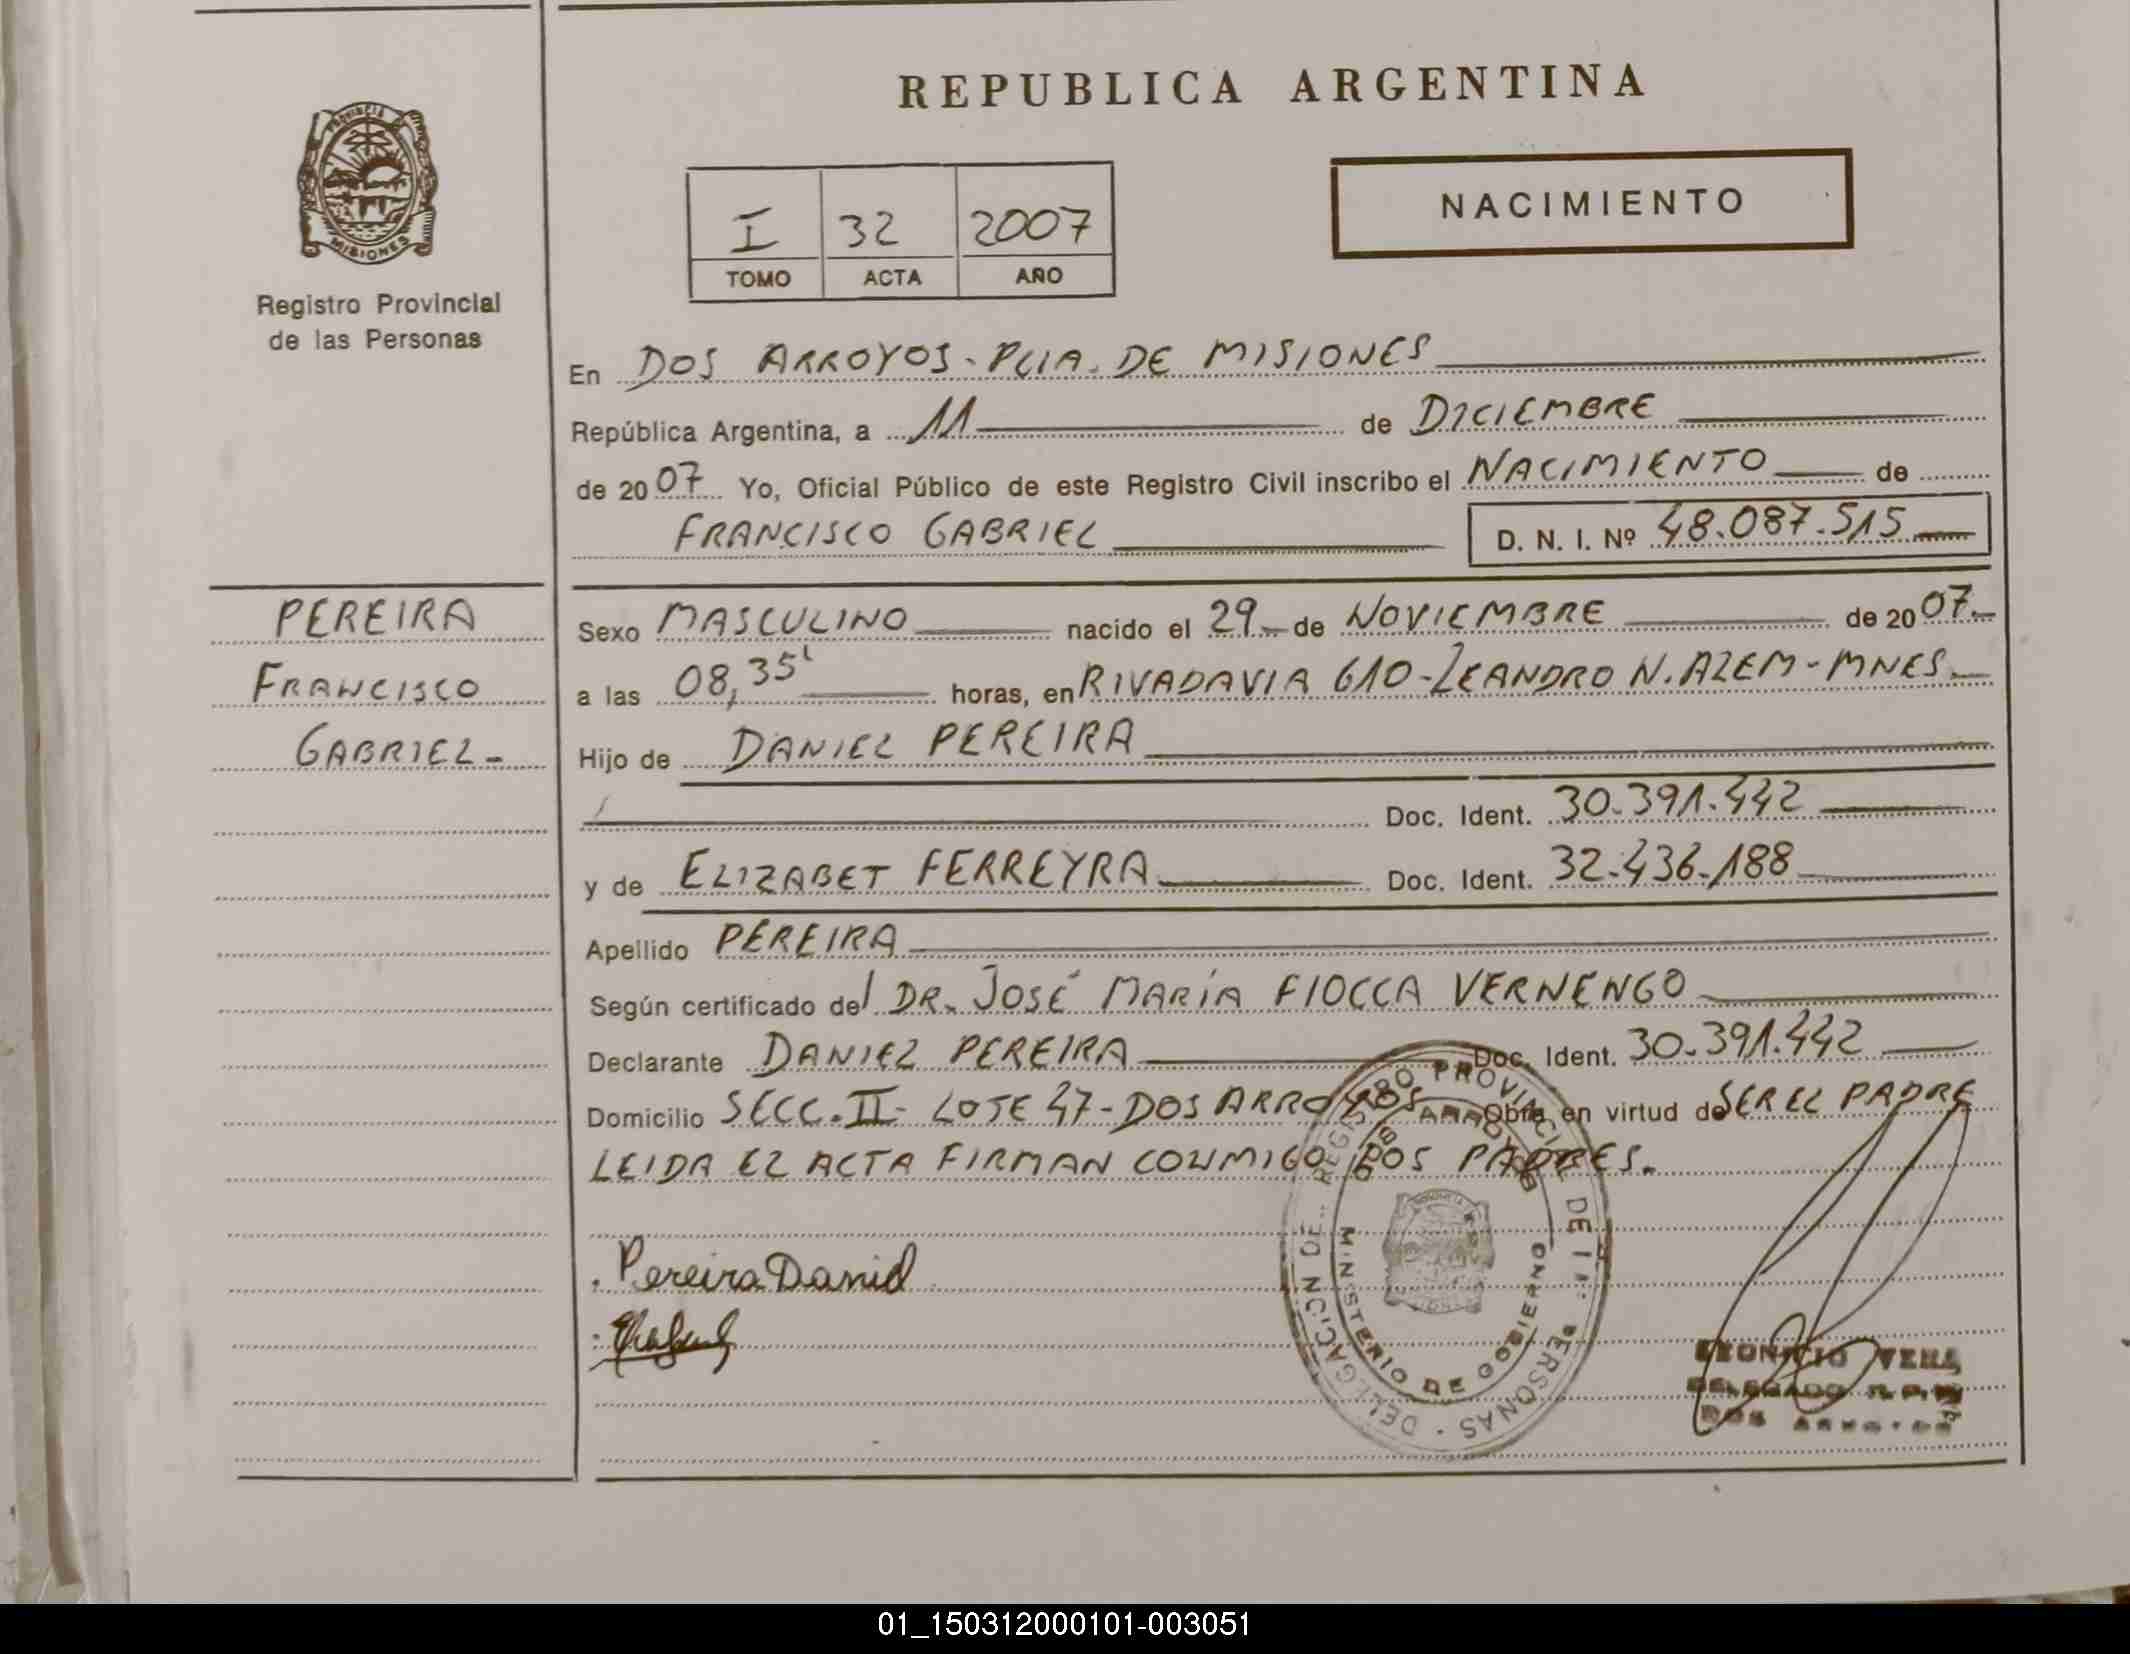 REPUBLICA ARGENTINA
PROVINCIA DE MISIONES
Registro Provincial
de las Personas
I 32 2007
TOMO ACTA AÑO
NACIMIENTO
En DOS ARROYOS - PCIA. DE MISIONES
República Argentina, a 11 de DICIEMBRE
de 2007 Yo, Oficial Público de este Registro Civil inscribo el NACIMIENTO de
FRANCISCO GABRIEL D. N. I. Nº 48.087.515
PEREIRA
FRANCISCO
GABRIEL-
Sexo MASCULINO nacido el 29 de NOVIEMBRE de 2007.
a las 08,35' horas, en RIVADAVIA 610-LEANDRO N. ALEM-MNES.
Hijo de DANIEL PEREIRA
Doc. Ident. 30.391.442
y de ELIZABET FERREYRA Doc. Ident. 32.436.188
Apellido PEREIRA
Según certificado del DR. JOSÉ MARÍA FIOCCA VERNENGO
Declarante DANIEL PEREIRA Doc. Ident. 30.391.442
Domicilio SECC. II - LOTE 47 - DOS ARROYOS Obra en virtud de SER EL PADRE
LEIDA EL ACTA FIRMAN CONMIGO LOS PADRES.
Pereira Daniel
REGISTRO PROVINCIAL DE LAS PERSONAS · DELEGACION DE
DOS ARROYOS
MINISTERIO DE GOBIERNO
VERA
DELEGADO R. P.
DOS ARROYOS
01_150312000101-003051